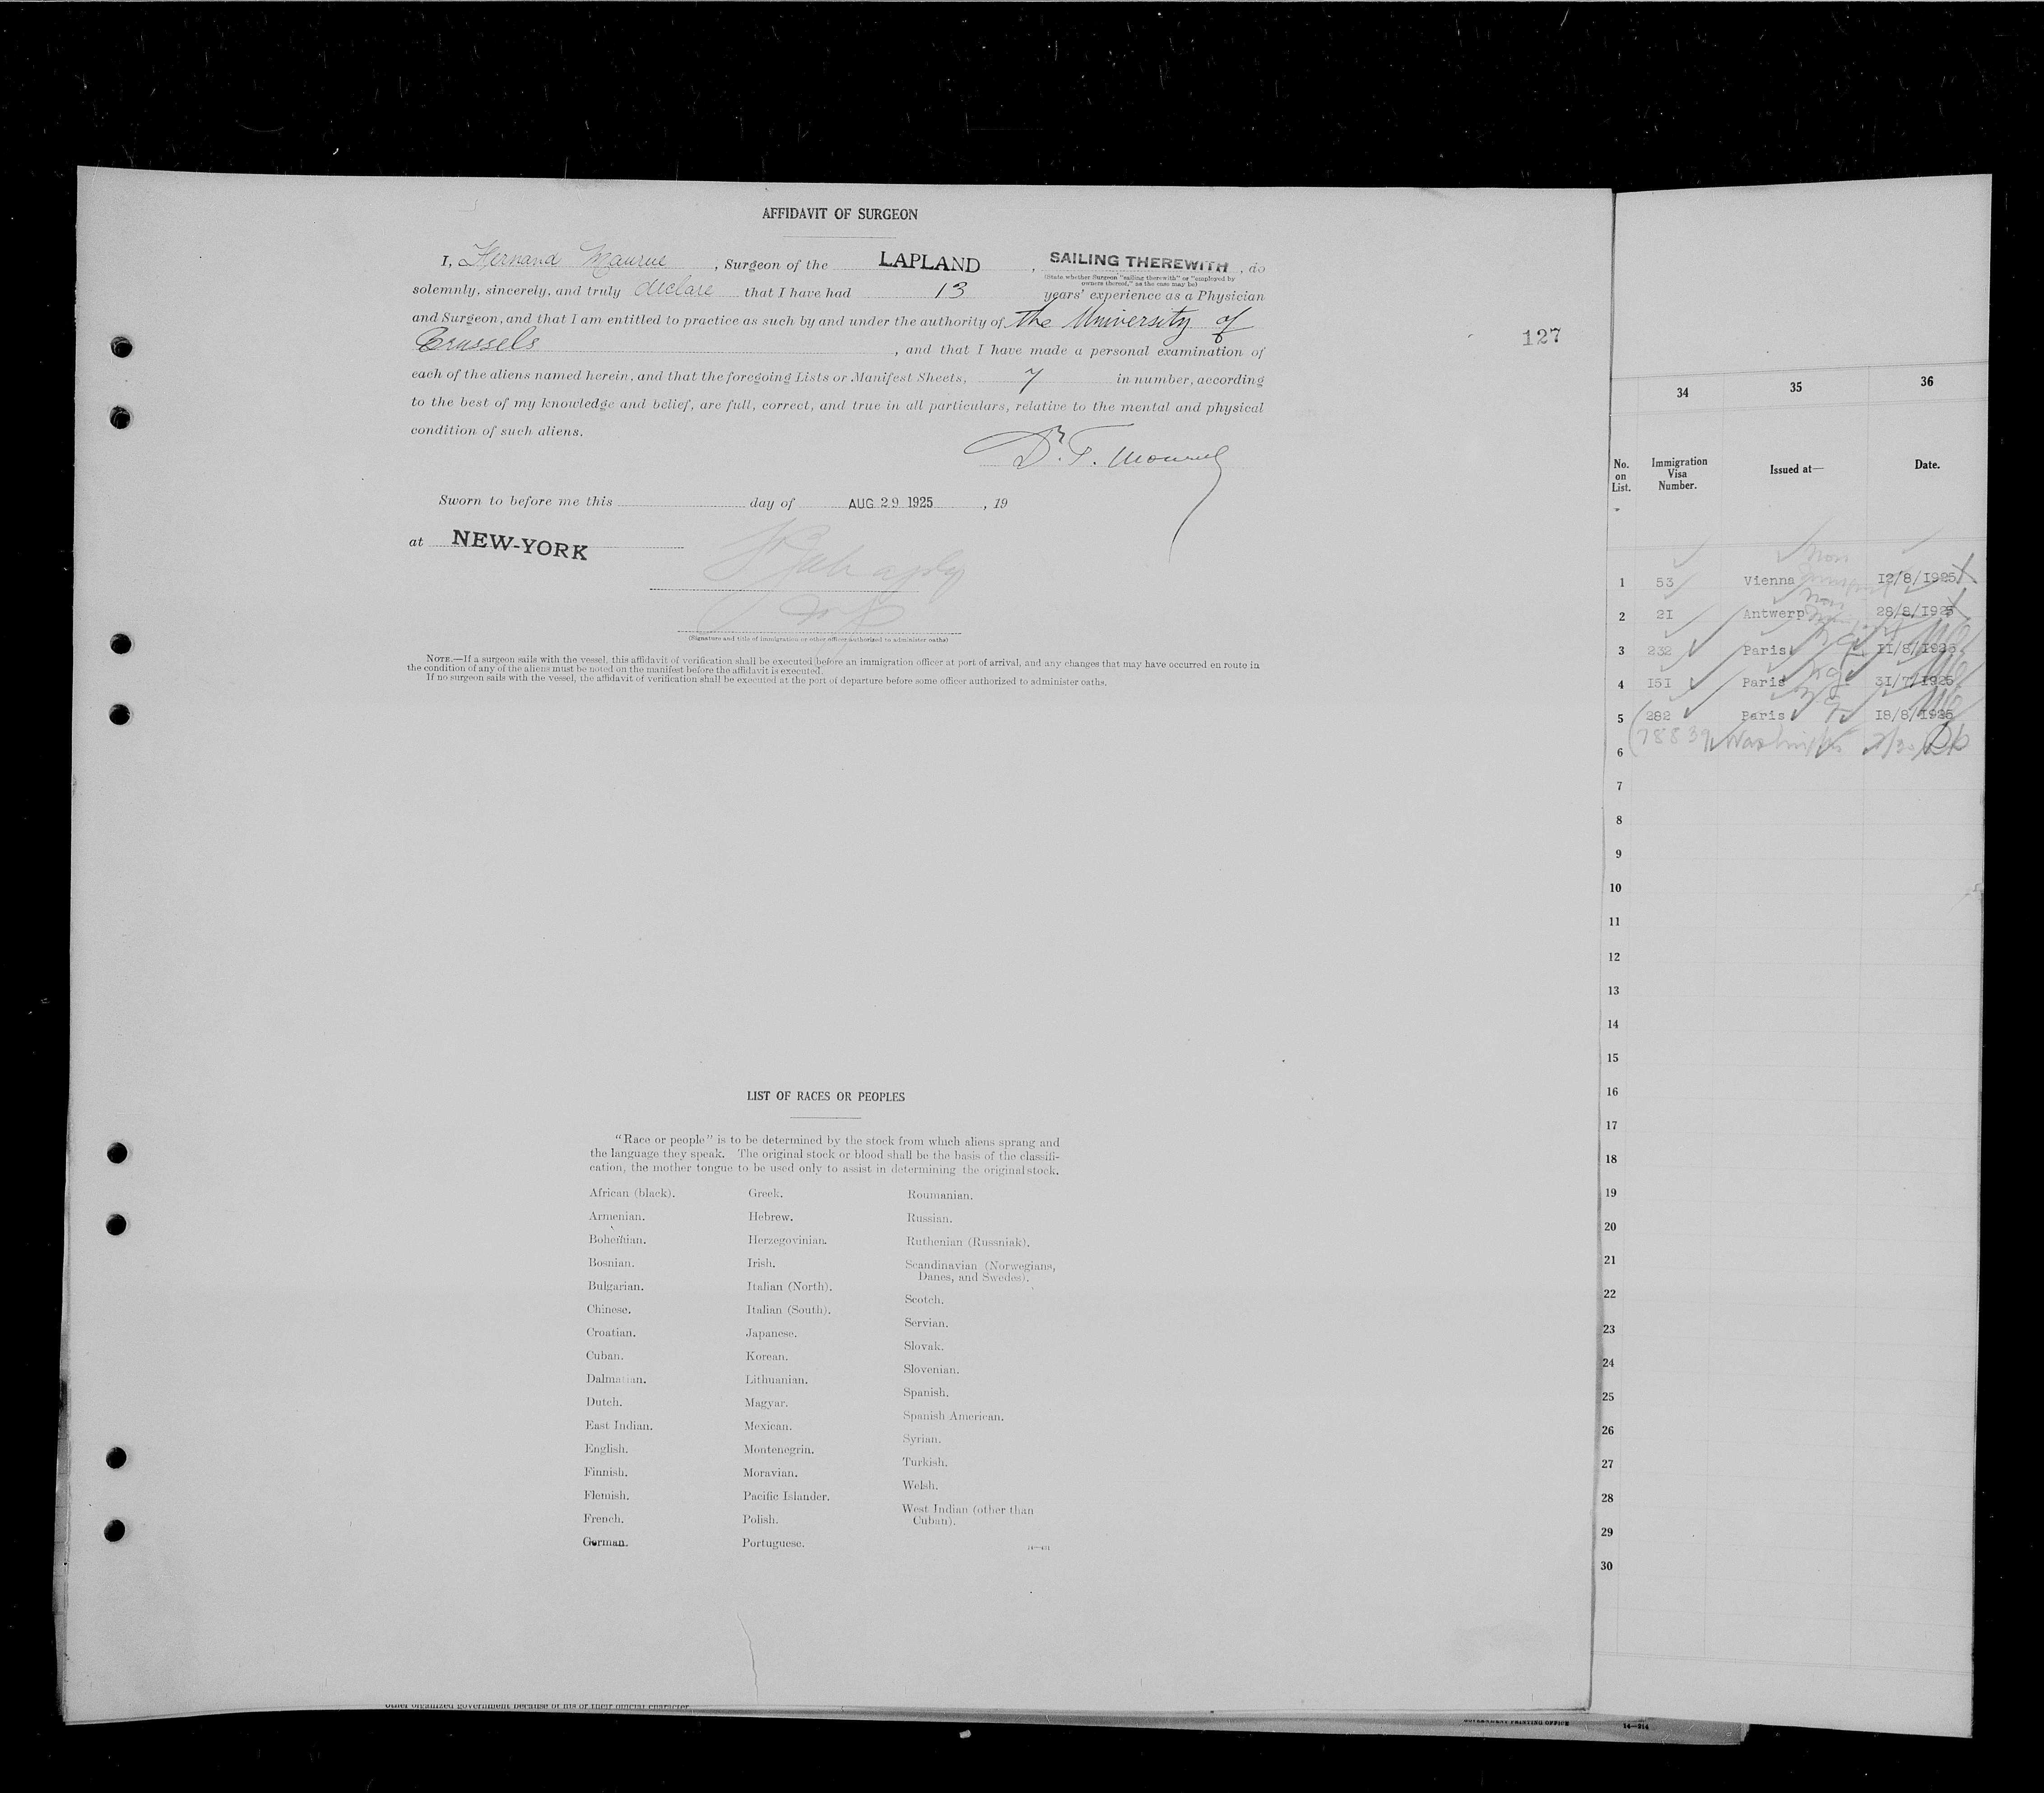 AFFIDAVIT OF SURGEON
I, Fernand , Surgeon of the LAPLAND , SAILING THEREWITH , do
(State whether Surgeon "sailing therewith" or "employed by
owners thereof," as the case may be)
solemnly, sincerely, and truly declare that I have had 13 years' experience as a Physician
and Surgeon, and that I am entitled to practice as such by and under the authority of the University of
Brussels , and that I have made a personal examination of
each of the aliens named herein, and that the foregoing Lists or Manifest Sheets, 7 in number, according
to the best of my knowledge and belief, are full, correct, and true in all particulars, relative to the mental and physical
condition of such aliens.
Dr. F.
Sworn to before me this day of AUG 29 1925 , 19
at NEW-YORK
(Signature and title of immigration or other officer authorized to administer oaths)
NOTE.—If a surgeon sails with the vessel, this affidavit of verification shall be executed before an immigration officer at port of arrival, and any changes that may have occurred en route in
the condition of any of the aliens must be noted on the manifest before the affidavit is executed.
If no surgeon sails with the vessel, the affidavit of verification shall be executed at the port of departure before some officer authorized to administer oaths.
127
LIST OF RACES OR PEOPLES
"Race or people" is to be determined by the stock from which aliens sprang and
the language they speak. The original stock or blood shall be the basis of the classifi-
cation, the mother tongue to be used only to assist in determining the original stock.
African (black).
Armenian.
Bohemian.
Bosnian.
Bulgarian.
Chinese.
Croatian.
Cuban.
Dalmatian.
Dutch.
East Indian.
English.
Finnish.
Flemish.
French.
German.
Greek.
Hebrew.
Herzegovinian.
Irish.
Italian (North).
Italian (South).
Japanese.
Korean.
Lithuanian.
Magyar.
Mexican.
Montenegrin.
Moravian.
Pacific Islander.
Polish.
Portuguese.
Roumanian.
Russian.
Ruthenian (Russniak).
Scandinavian (Norwegians,
Danes, and Swedes).
Scotch.
Servian.
Slovak.
Slovenian.
Spanish.
Spanish American.
Syrian.
Turkish.
Welsh.
West Indian (other than
Cuban).
other organized government because of his or their official character
34 35 36
No.
on
List.
Immigration
Visa
Number.
Issued at—
Date.
1 53 Vienna 12/8/1925
2 21 Antwerp 28/8/1925
3 232 Paris 11/8/1925
4 151 Paris 31/7/1925
5 282 Paris 18/8/1925
6 78839 Washington
7
8
9
10
11
12
13
14
15
16
17
18
19
20
21
22
23
24
25
26
27
28
29
30
GOVERNMENT PRINTING OFFICE 14—314